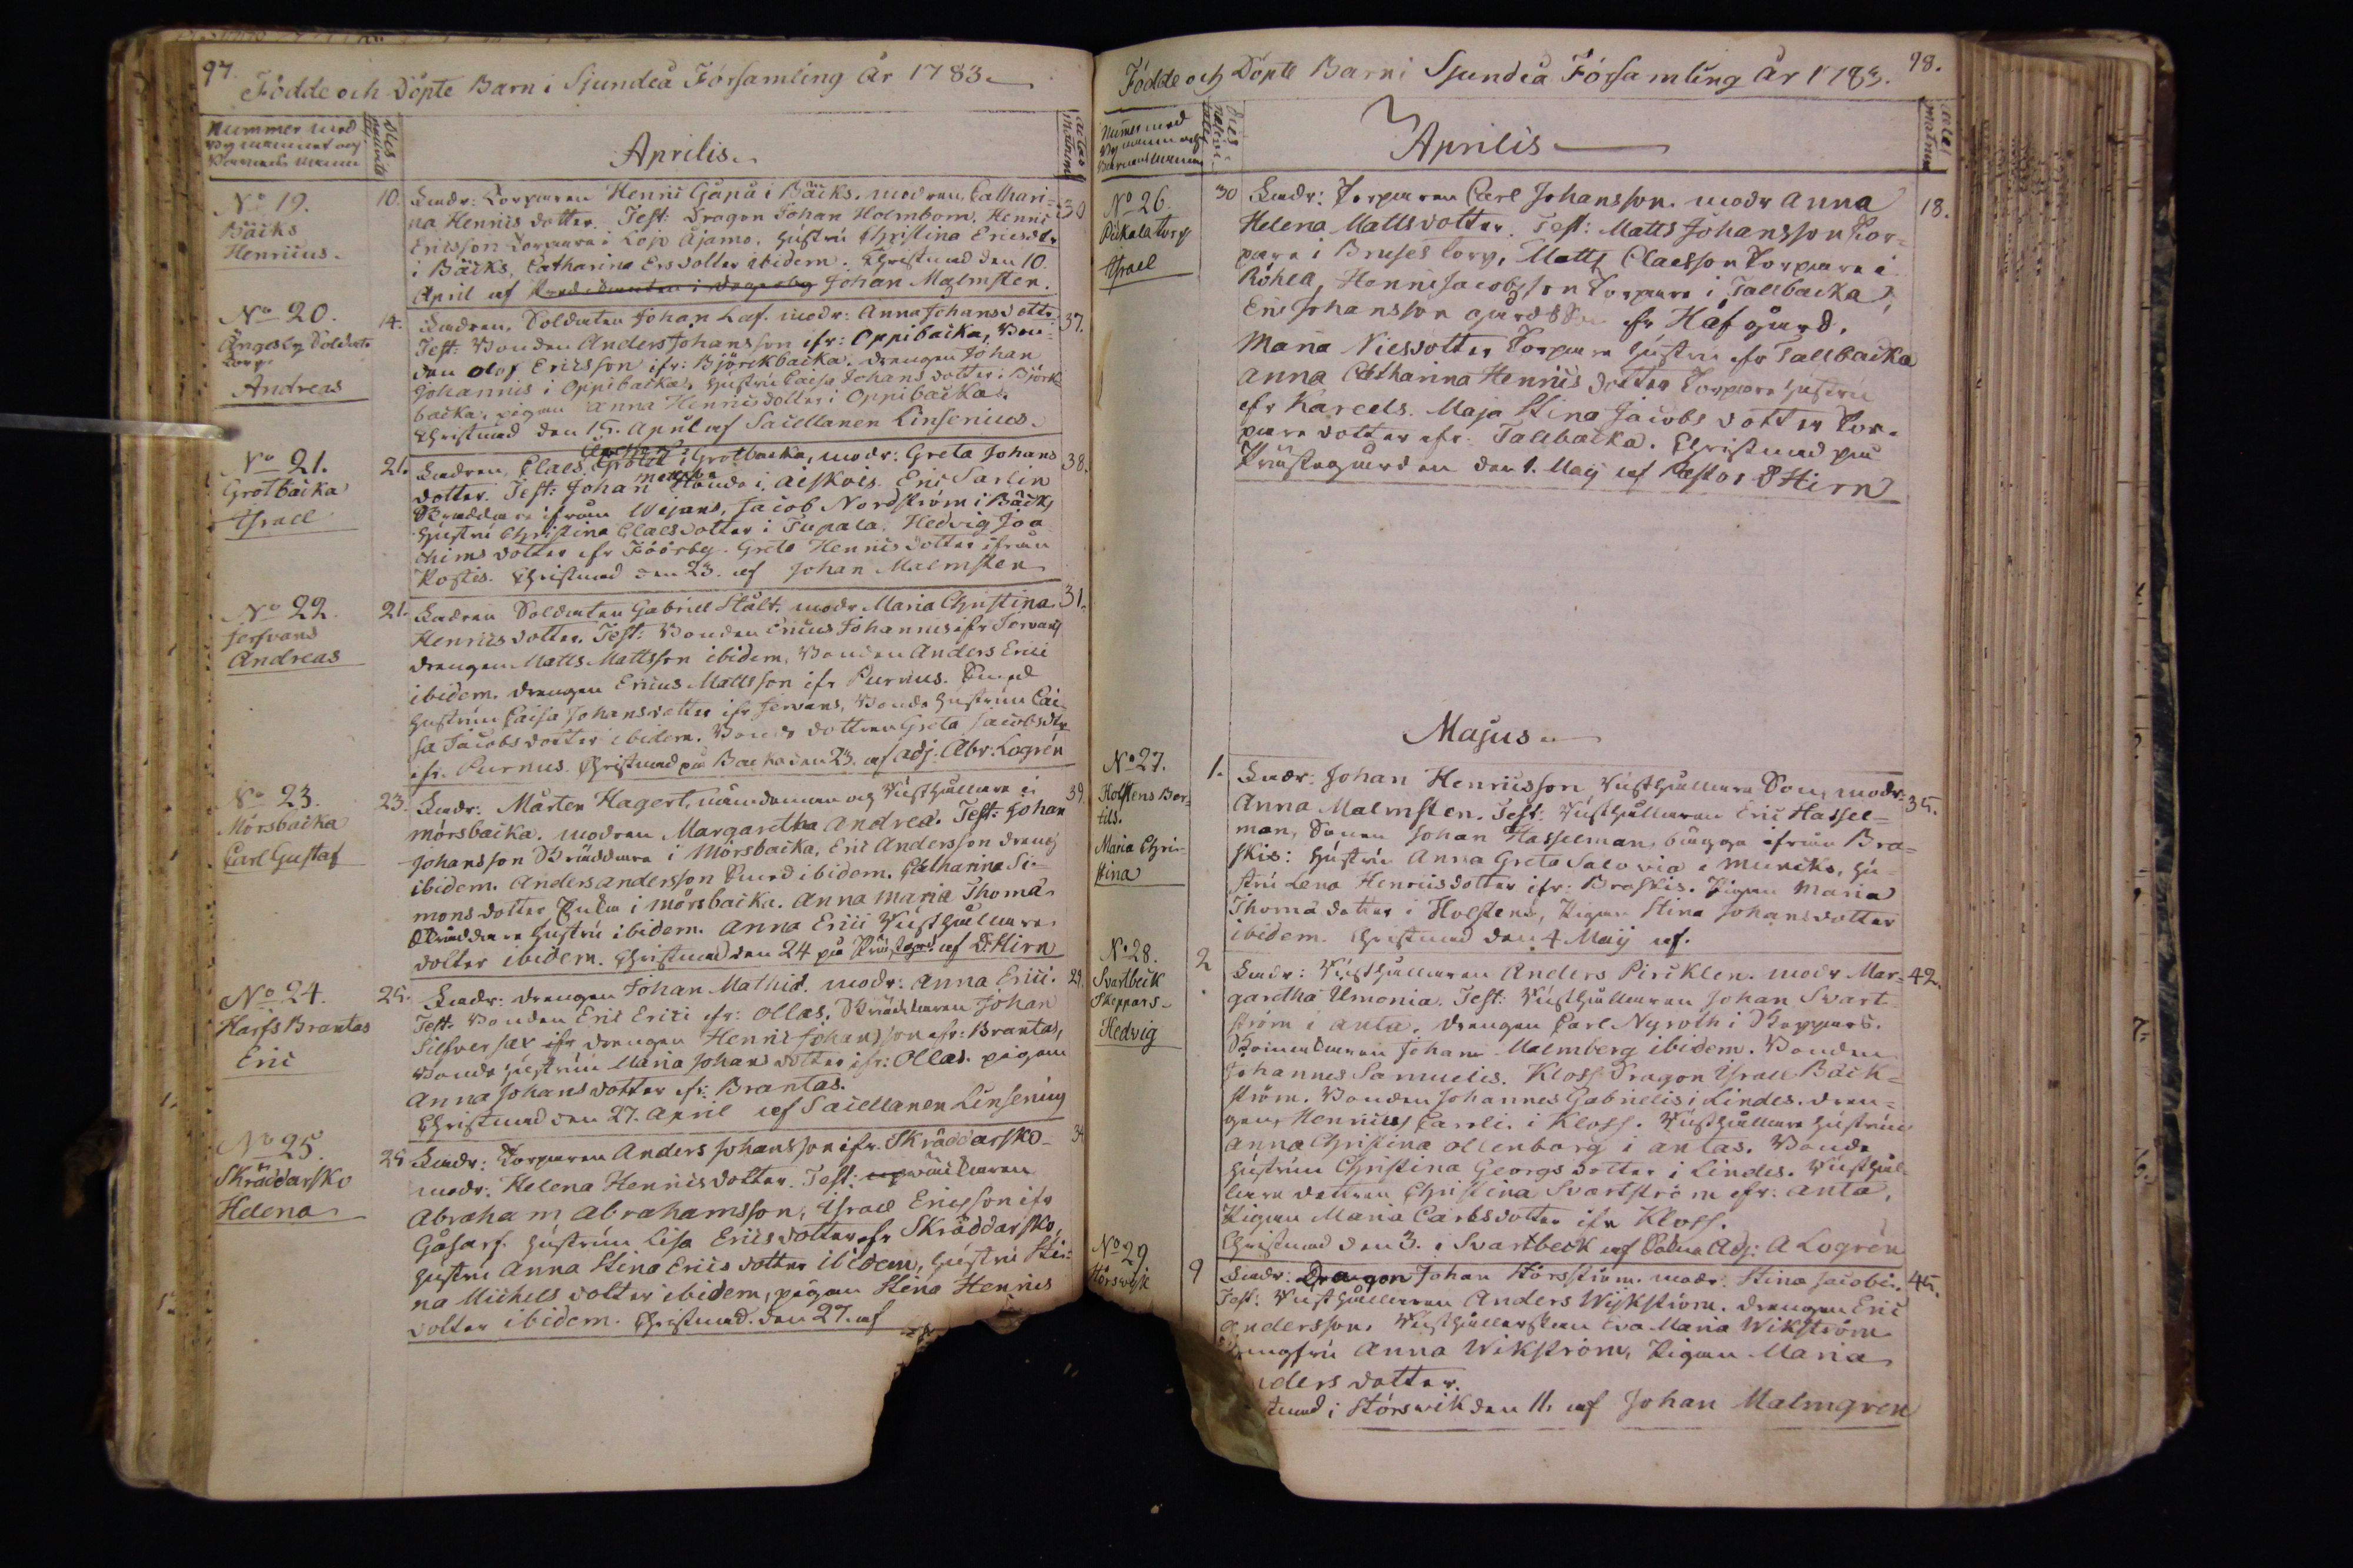 97.
Födde och Döpte Barn i Sjundeå Församling år 1783.
Nummer med
By namnet och
Barnets namn
Dies nativit.
Aprilis.
aetas matrum
No 19.
Bäcks
Henricus.
10.
Fadr: Torparen Henric Gåpå i Bäcks. modren Cathari=
na Henrics dotter. Test: Dragon Johan Holmbom. Henric
Ericsson Torpare i Lojo Äjamo, hustru Christina Ericsdtr
i Bäcks, Catharina Ersdotter ibidem. Christnad den 10.
April af Johan Malmsten.
30
No 20.
Ängesby Soldate
Torp.
Andreas
14.
Fadren, Soldaten Johan Laf. modr: Anna Johans dotter
Test: Bonden Anders Johansson ifr: Oppibacka, Bon=
den Olof Ericsson ifr: Björckbacka. drengen Johan
Johannis i Oppibacka, hustru Caisa Johans dotter i Björk
backa. pigan Anna Henricsdotter i Oppibacka.
Christnad den 15. April af Sacellanen Linsenius.
37.
No 21.
Grotbacka
Israel
21.
Fadren, Claes i Grotbacka, modr: Greta Johans
dotter. Test: Johan Bonde i Aiskois. Eric Sarlin
Skräddare ifrån Wejans, Jacob Nordström i Bäcks
hustru Christina Claesdotter i Tupala. Hedvig Joa
chims dotter ifr Föörby. Greta Henrics dotter ifrån
Kostis. Christnad den 23. af Johan Malmsten
38.
No 22.
Jersvans
Andreas
21.
Fadren Soldaten Gabriel Stålt. modr Maria Christina
Henrics dotter. Test: Bonden Ericus Johannis ifr Jervans
drengen Matts Mattsson ibidem, Bonden Anders Erici
ibidem. drengen Ericus Mattsson ifr Purnus.
hustrun Caisa Johansdotter ifr Jervans, Bonde hustrun Cai
sa Jacobs dotter ibidem. Bonde dottren Greta Jacobsdtr
ifr. Purnus. Christnad på Backa den 23. af adj. Abr. Logrén
31.
No 23.
Mörsbacka
Carl Gustaf
23.
Fadr: Mårten Hagert, nämdeman och Rusthållare i
mörsbacka. modren Margaretha Andreæ. Test: Johan
Johansson Skräddare i Mörsbacka, Eric Andersson dreng
ibidem. Anders andersson ibidem. Catharina Si=
mons dotter Enka i mörsbacka. Anna Maria Thomæ
Skräddare hustru ibidem. Anna Erici Rusthållare
dotter ibidem. Christnad den 24 på Prästgrd af D: Hirn
39.
No 24.
Harfs Brantas
Eric
25.
Fadr: drengen Johan Mathiæ. modr: Anna Erici.
Test. Bonden Eric Erici ifr: Ollas. Skräddaren Johan
Silfversax ifr drengen Henric Johansson ifr: Brantas,
Bonde hustrun Maria Johans dotter ifr: Ollas. pigan
Anna Johans dotter ifr: Brantas.
Christnad den 27. April af Sacellanen Linsenius
29.
No 25.
Skräddarsko
Helena
25
Fadr: Torparen Anders Johansson ifr. Skräddarsko
modr: Helena Henricsdotter. Test:
Abraham Abrahamsson, Israel Ericsson ifr
Gåsarf. hustrun Lisa Erics dotter ifr Skräddarsko,
hustru Anna Stina Erics dotter ibidem, hustru Sti=
na Michels dotter ibidem, pigan Stina Henrics
dotter ibidem. Christnad. den 27. af
34
98.
Födde och Döpte Barn i Sjundeå Församling år 1783.
Numer med
By namn och
Barnens namn
Dies nativitatis
Aprilis
aetas matrum
No 26.
Pickala torp
Israel
30
Fadr: Torparen Carl Johansson. modr Anna
Helena Mattsdotter. Test: Matts Johansson Tor=
pare i Bruses torp, Matts Claesson Torpare i
Röhla, Henric Jacobsson Torpare i Tallbacka,
Eric Johansson ifr Hafgård.
Maria Nilsdotter Torpare hustru ifr Tallbacka
Anna Catharina Henrics dotter Torpare hustru
ifr Karcels. Maja Stina Jacobs dotter Tor=
pare dotter ifr. Tallbacka. Christnad på
Prästegården den 1. Maij af Pastor D Hirn
18.
Majus
No 27.
Holstens Ber=
tils.
Maria Chri=
stina
1.
Fadr: Johan Henricsson Rusthållare Son, modr:
Anna Malmsten. Test: Rusthållaren Eric Hassel=
man, Sonen Johan Hasselman bägge ifrån Bra=
skis: hustru Anna Greta Salovia i Muncks, hu=
stru Lena Henricsdotter ifr: Braskis. Pigan Maria
Thomædotter i Holstens, Pigan Stina Johansdotter
ibidem. Christnad den 4 Maij af.
35.
No 28.
Svartbeck
Skeppars
Hedvig
2
Fadr: Rusthållaren Anders Pircklen. modr Mar=
garetha Umonia. Test: Rusthållaren Johan Svart
ström i Anta. drengen Carl Nyroth i Skeppars.
Johan Malmberg ibidem. Bonden
Johannes Samuelis. Kloss Dragon Israel Bäck=
ström. Bonden Johannes Gabrielis i Lindes. dren=
gen, Henricus Caroli i Kloss. Rusthållare hustrun
Anna Christina Ollenborg i Antas. Bonde
hustrun Christina Georgs dotter i Lindes. Rusthål=
lare dottren Christina Svartström ifr: Anta,
Pigan Maria Carlsdotter ifr Kloss.
Christnad den 3. i Svartbeck af Adj: A Logrén
42.
No 29
Störsvik
9
Fadr: Dragon Johan Störsström. modr. Stina Jacobi.
Test: Rusthållaren Anders Wijkström. drengen Eric
Andersson, Rusthållerskan Eva Maria Wikström
Jungfru Anna Wikström, Pigan Maria
ders dotter.
tnad i Störsvik den 11. af Johan Malmgren
45.